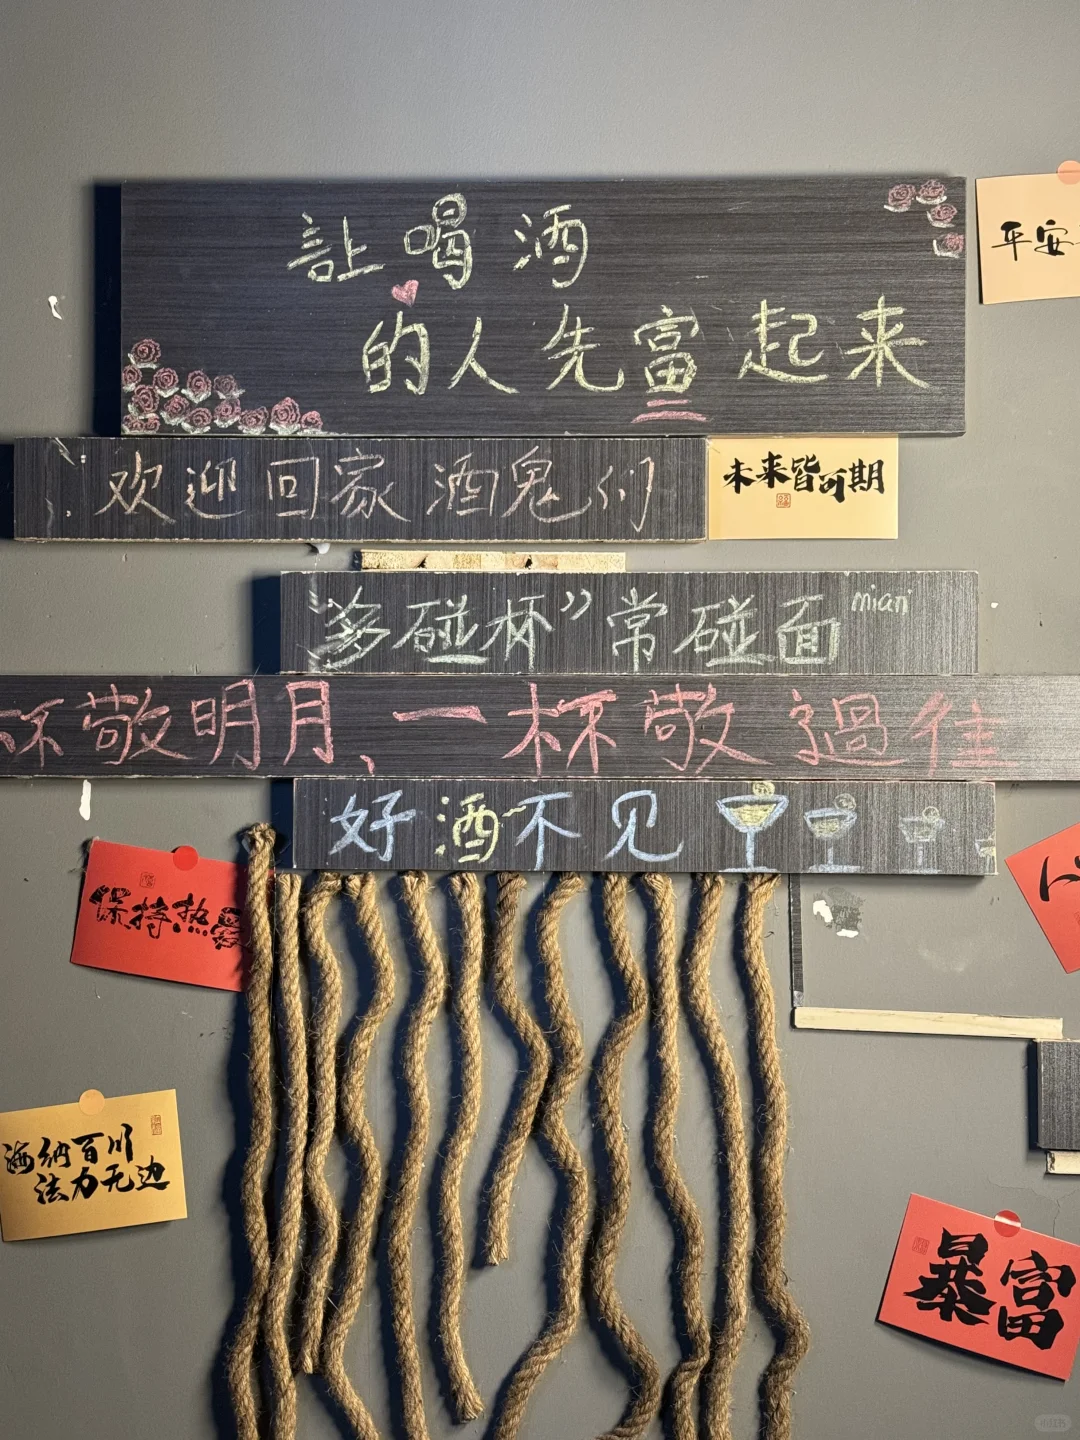 訁上喝酒
的人先富起来
平安
欢迎回家酒鬼们
未来皆可期
“多碰杯”常碰面 mian
杯敬明月、一杯敬過往
好酒不见
保持热爱
心
海纳百川
法力无边
暴富
小红书